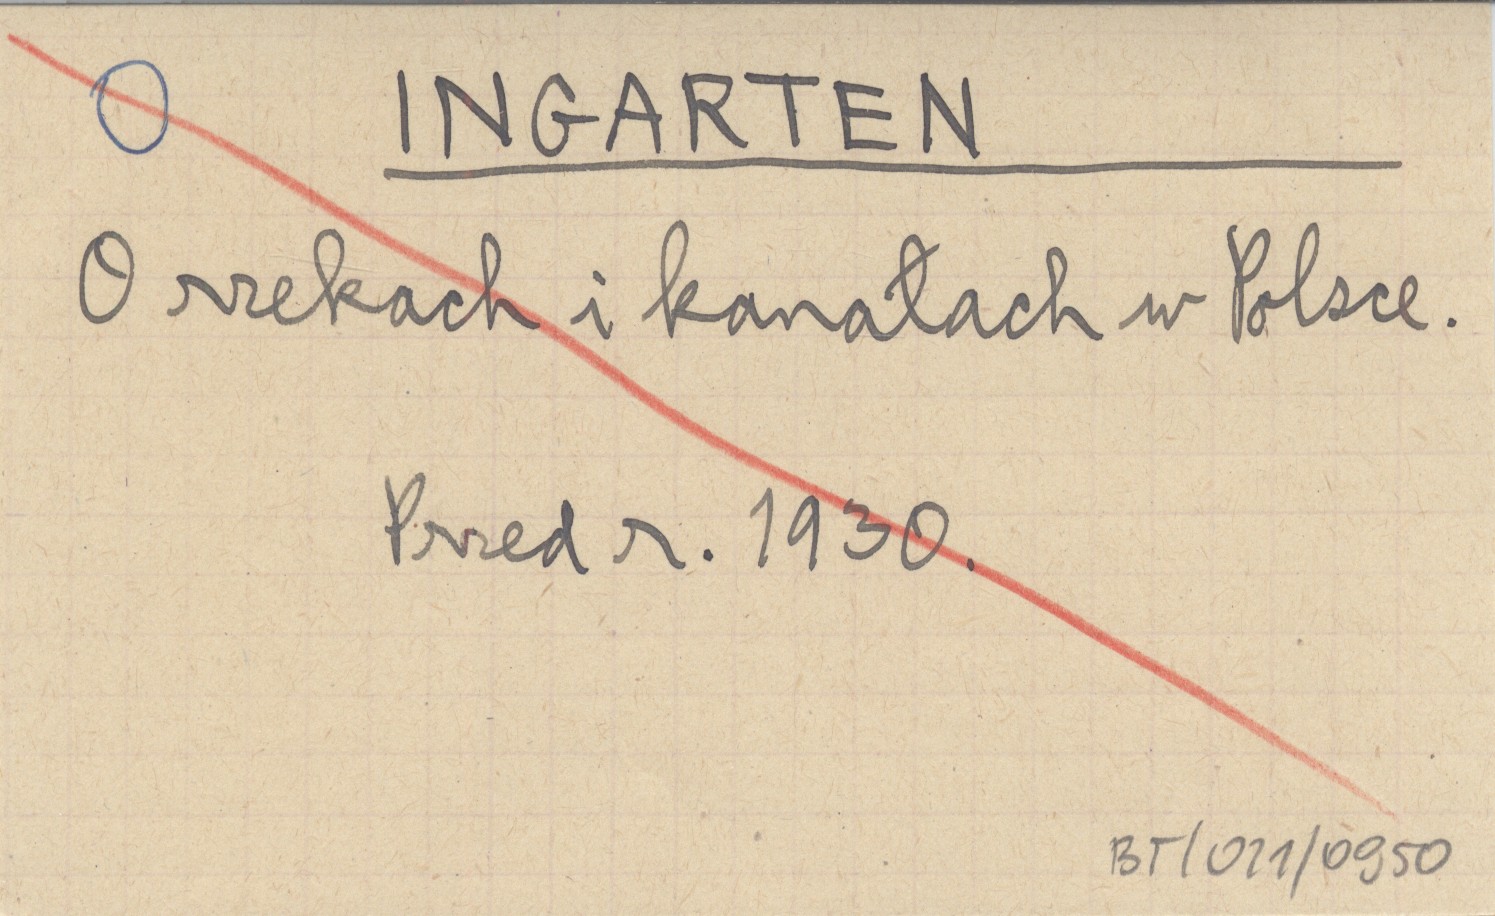 O INGARTEN
O rzekach i kanałach w Polsce.
Przed r. 1930.
BT/011/0950